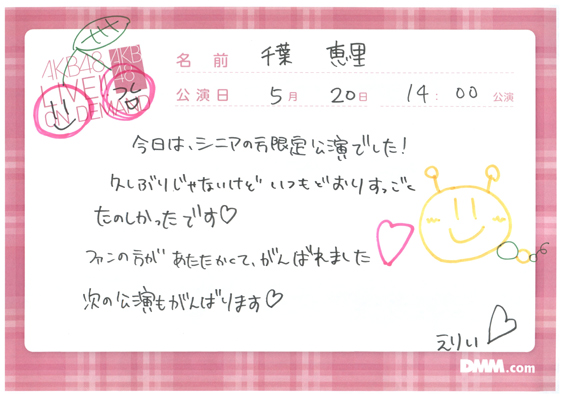 AKB48
LIVE!!
ON DEMAND
AKB
48
名前 千葉 恵里
公演日 5月 20日 14:00 公演
今日は、シニアの方限定公演でした!
久しぶりじゃないけど いつもどおりすっごく
たのしかったです♡
ファンの方が あたたかくて、がんばれました
次の公演もがんばります♡
えりい♡
DMM.com